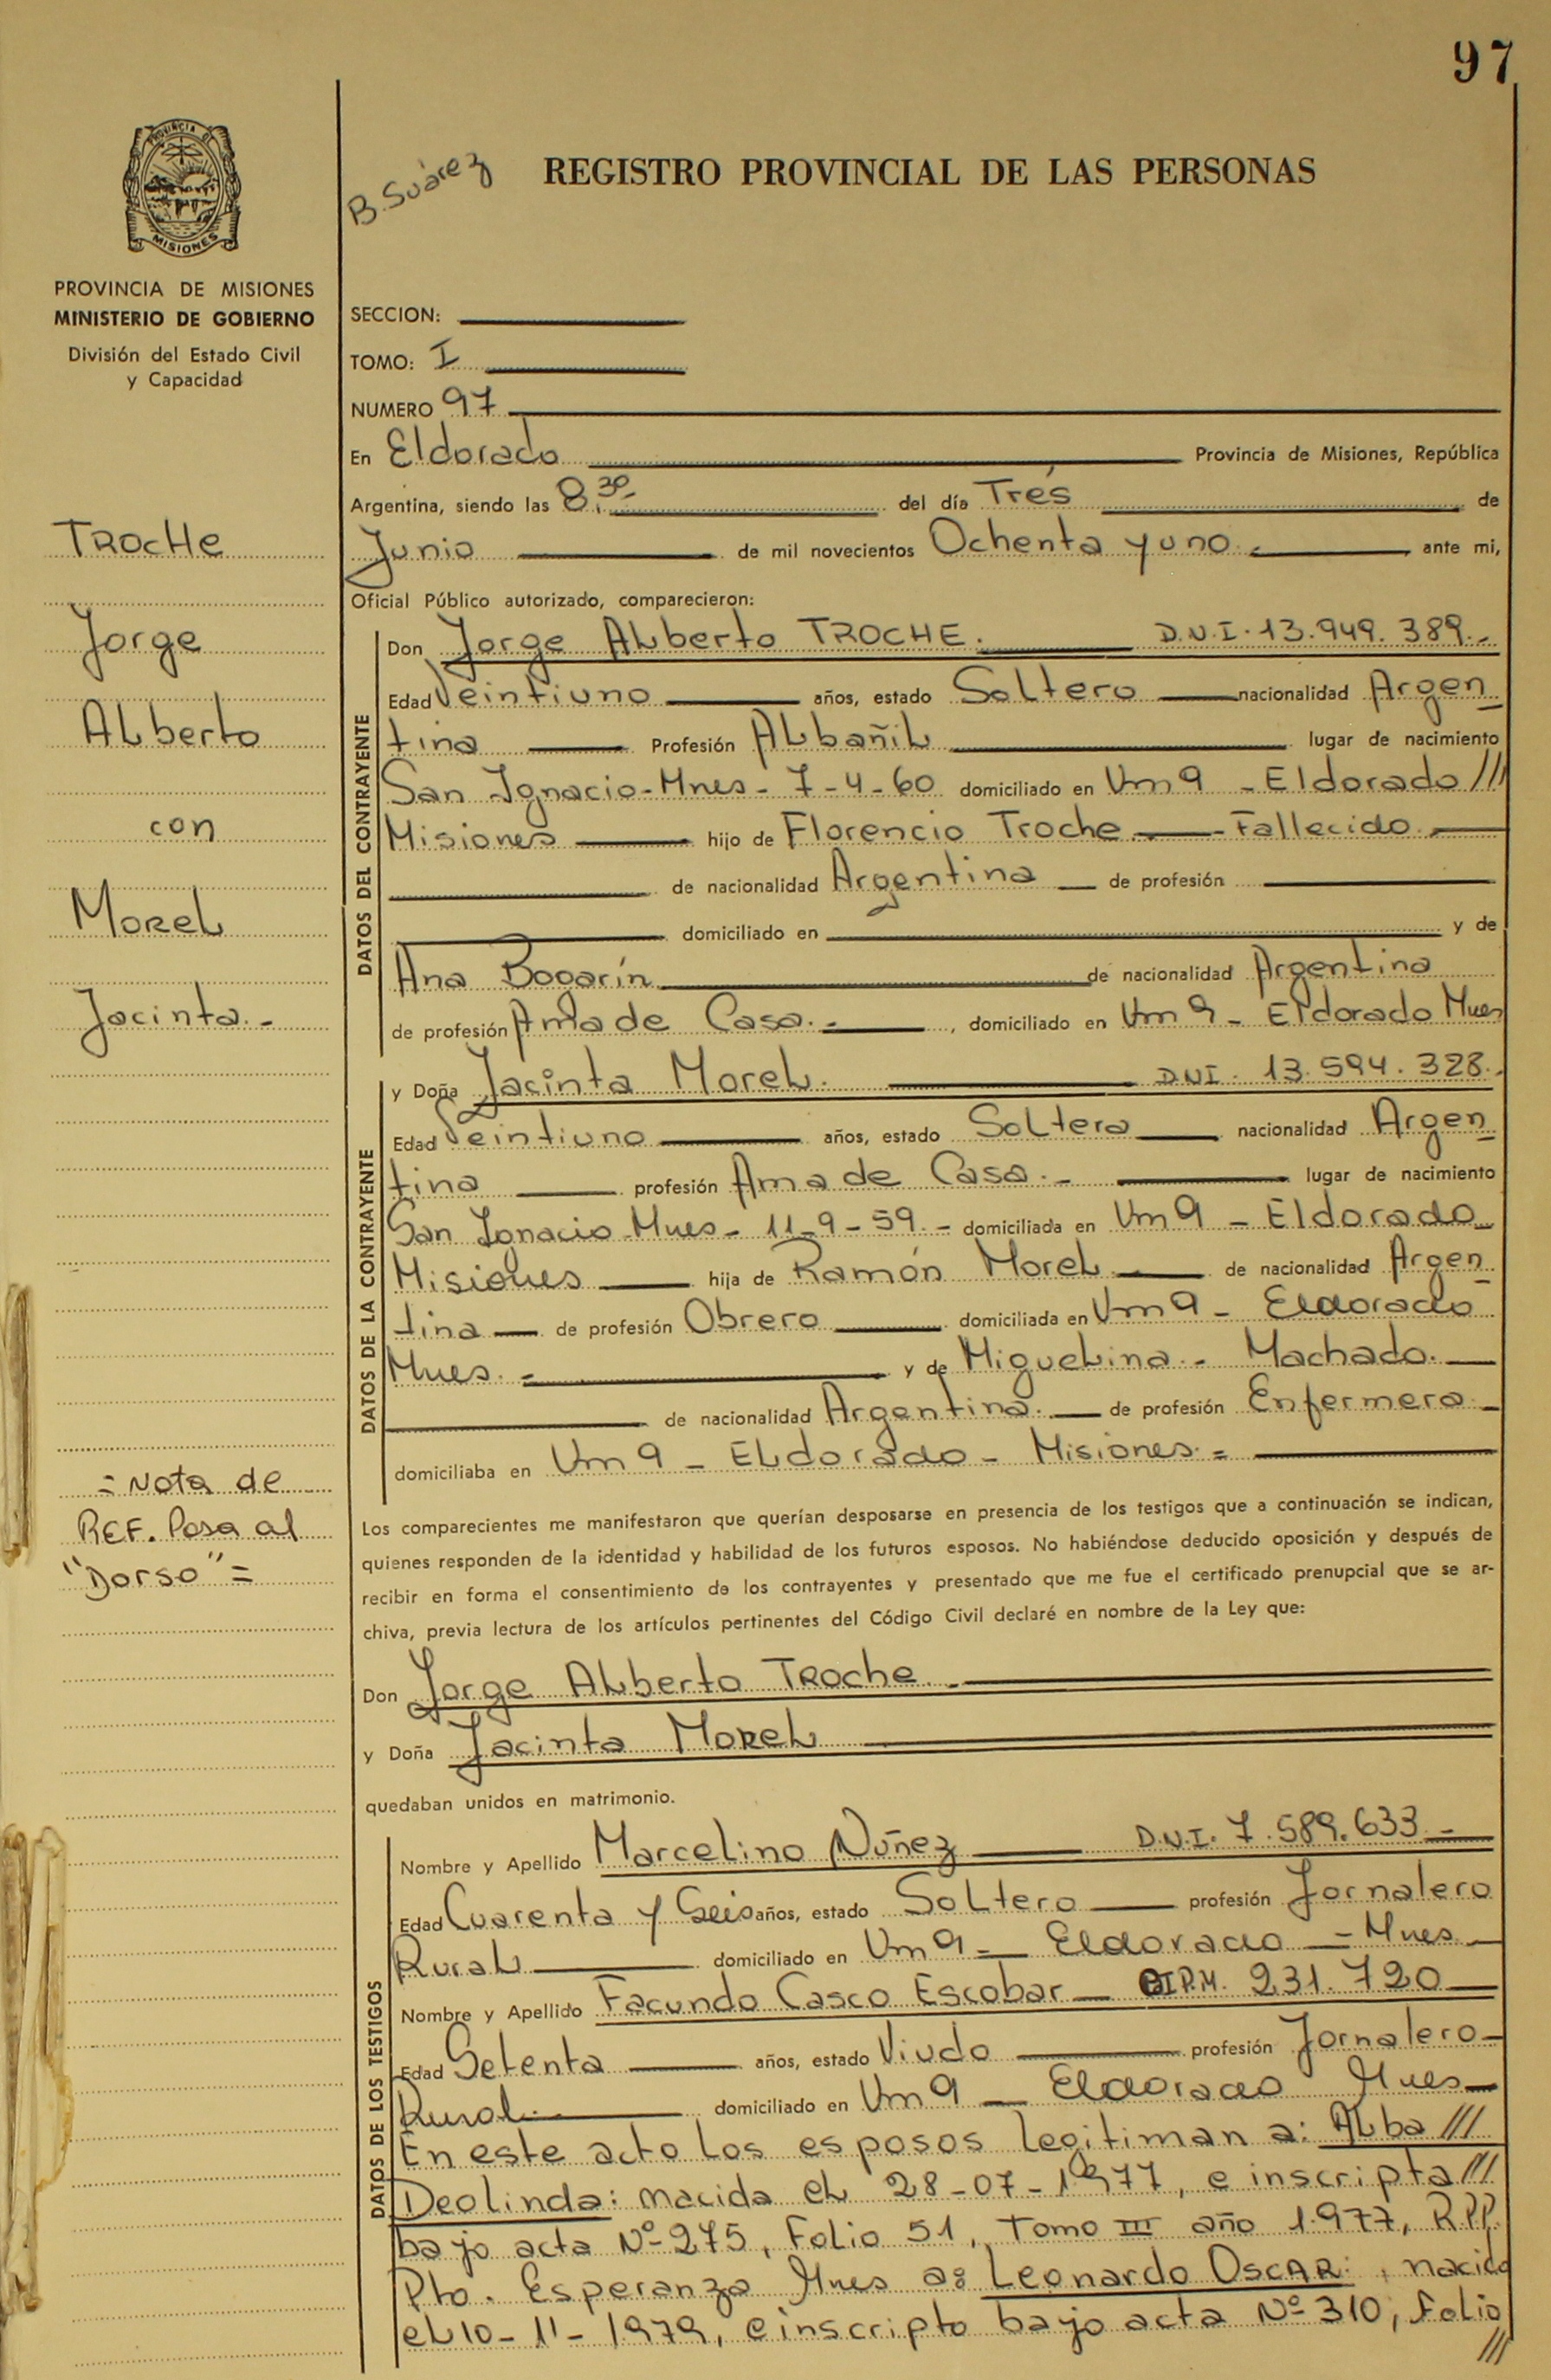 97
B. Suárez
REGISTRO PROVINCIAL DE LAS PERSONAS
PROVINCIA DE
MISIONES
PROVINCIA DE MISIONES
MINISTERIO DE GOBIERNO
División del Estado Civil
y Capacidad
TROCHE
Jorge
Alberto
con
Morel
Jacinta.-
=Nota de
REF. Pasa al
"Dorso"=
SECCION:
TOMO: I
NUMERO 97
En Eldorado Provincia de Misiones, República
Argentina, siendo las 8:30- del día Tres de
Junio de mil novecientos Ochenta y uno.- ante mi,
Oficial Público autorizado, comparecieron:
DATOS DEL CONTRAYENTE
Don Jorge Alberto TROCHE. D.N.I. 13.949.389.-
Edad Veintiuno años, estado Soltero nacionalidad Argen
tina Profesión Albañil lugar de nacimiento
San Ignacio-Mnes- 7-4-60 domiciliado en Km 9 - Eldorado ///
Misiones hijo de Florencio Troche - Fallecido.-
de nacionalidad Argentina de profesión
domiciliado en y de
Ana Bogarín de nacionalidad Argentina
de profesión Ama de Casa.- , domiciliado en Km 9 - Eldorado Mnes
DATOS DE LA CONTRAYENTE
y Doña Jacinta Morel. DNI. 13.594.328.-
Edad Veintiuno años, estado Soltera nacionalidad Argen
tina profesión Ama de Casa.- lugar de nacimiento
San Ignacio Mnes- 11-9-59.- domiciliada en Km 9 - Eldorado
Misiones hija de Ramón Morel de nacionalidad Argen
tina de profesión Obrero domiciliada en Km 9 - Eldorado
Mnes.= y de Miguelina.- Machado.
de nacionalidad Argentina. de profesión Enfermera
domiciliaba en Km 9 - Eldorado - Misiones.=
Los comparecientes me manifestaron que querían desposarse en presencia de los testigos que a continuación se indican,
quienes responden de la identidad y habilidad de los futuros esposos. No habiéndose deducido oposición y después de
recibir en forma el consentimiento de los contrayentes y presentado que me fue el certificado prenupcial que se ar-
chiva, previa lectura de los artículos pertinentes del Código Civil declaré en nombre de la Ley que:
Don Jorge Alberto Troche.-
y Doña Jacinta Morel
quedaban unidos en matrimonio.
DATOS DE LOS TESTIGOS
Nombre y Apellido Marcelino Núñez D.N.I. 7.589.633.-
Edad Cuarenta y Seis años, estado Soltero profesión Jornalero
Rural domiciliado en Km 9 = Eldorado - Mnes
Nombre y Apellido Facundo Casco Escobar - 231.720
Edad Setenta años, estado Viudo profesión Jornalero-
Rural.- domiciliado en Km 9 - Eldorado Mnes-
En este acto los esposos legitiman a: Alba ///
Deolinda: nacida el 28-07-1977, e inscripta ///
bajo acta Nº 275, Folio 51, Tomo III año 1.977, R.P.P.
Pto. Esperanza Mnes a: Leonardo OSCAR: , nacido
el 10-11-1979, e inscripto bajo acta Nº 310, Folio
///